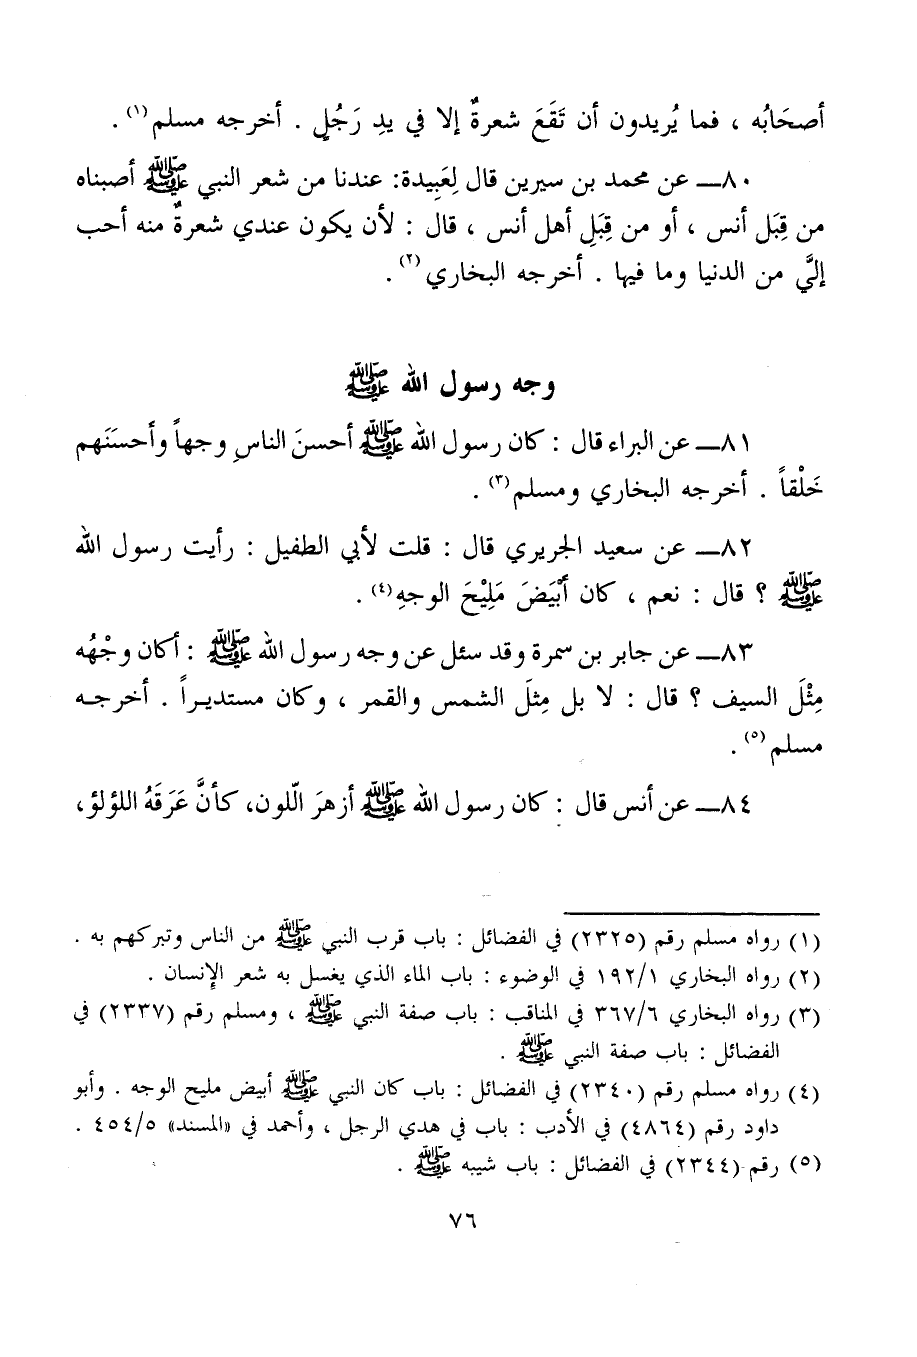 أصحَابُه ، فما يُريدون أن تَقَعَ شعرةٌ إلا في يدِ رَجُلٍ . أخرجه مسلم(١) .
٨٠ـ عن محمد بن سيرين قال لِعَبِيدة: عندنا من شعر النبي ﷺ أصبناه
من قِبَل أنس ، أو من قِبَلِ أهل أنس ، قال : لأن يكون عندي شعرةٌ منه أحب
إليَّ من الدنيا وما فيها . أخرجه البخاري(٢) .
وجه رسول الله ﷺ
٨١ـ عن البراء قال : كان رسول الله ﷺ أحسنَ الناسِ وجهاً وأحسَنَهم
خَلْقاً . أخرجه البخاري ومسلم(٣) .
٨٢ـ عن سعيد الجريري قال : قلت لأبي الطفيل : رأيت رسول الله
ﷺ ؟ قال : نعم ، كان أَبْيَضَ مَلِيْحَ الوجهِ(٤) .
٨٣ـ عن جابر بن سمرة وقد سئل عن وجه رسول الله ﷺ : أكان وجْهُه
مِثْلَ السيف ؟ قال : لا بل مِثلَ الشمس والقمر ، وكان مستديراً . أخرجه
مسلم(٥) .
٨٤ـ عن أنس قال : كان رسول الله ﷺ أزهرَ الّلون، كأنَّ عَرَقَهُ اللؤلؤ،
(١) رواه مسلم رقم (٢٣٢٥) في الفضائل : باب قرب النبي ﷺ من الناس وتبركهم به .
(٢) رواه البخاري ١٩٢/١ في الوضوء : باب الماء الذي يغسل به شعر الإنسان .
(٣) رواه البخاري ٣٦٧/٦ في المناقب : باب صفة النبي ﷺ ، ومسلم رقم (٢٣٣٧) في
الفضائل : باب صفة النبي ﷺ .
(٤) رواه مسلم رقم (٢٣٤٠) في الفضائل : باب كان النبي ﷺ أبيض مليح الوجه . وأبو
داود رقم (٤٨٦٤) في الأدب : باب في هدي الرجل ، وأحمد في «المسند» ٤٥٤/٥ .
(٥) رقم (٢٣٤٤) في الفضائل : باب شيبه ﷺ .
٧٦